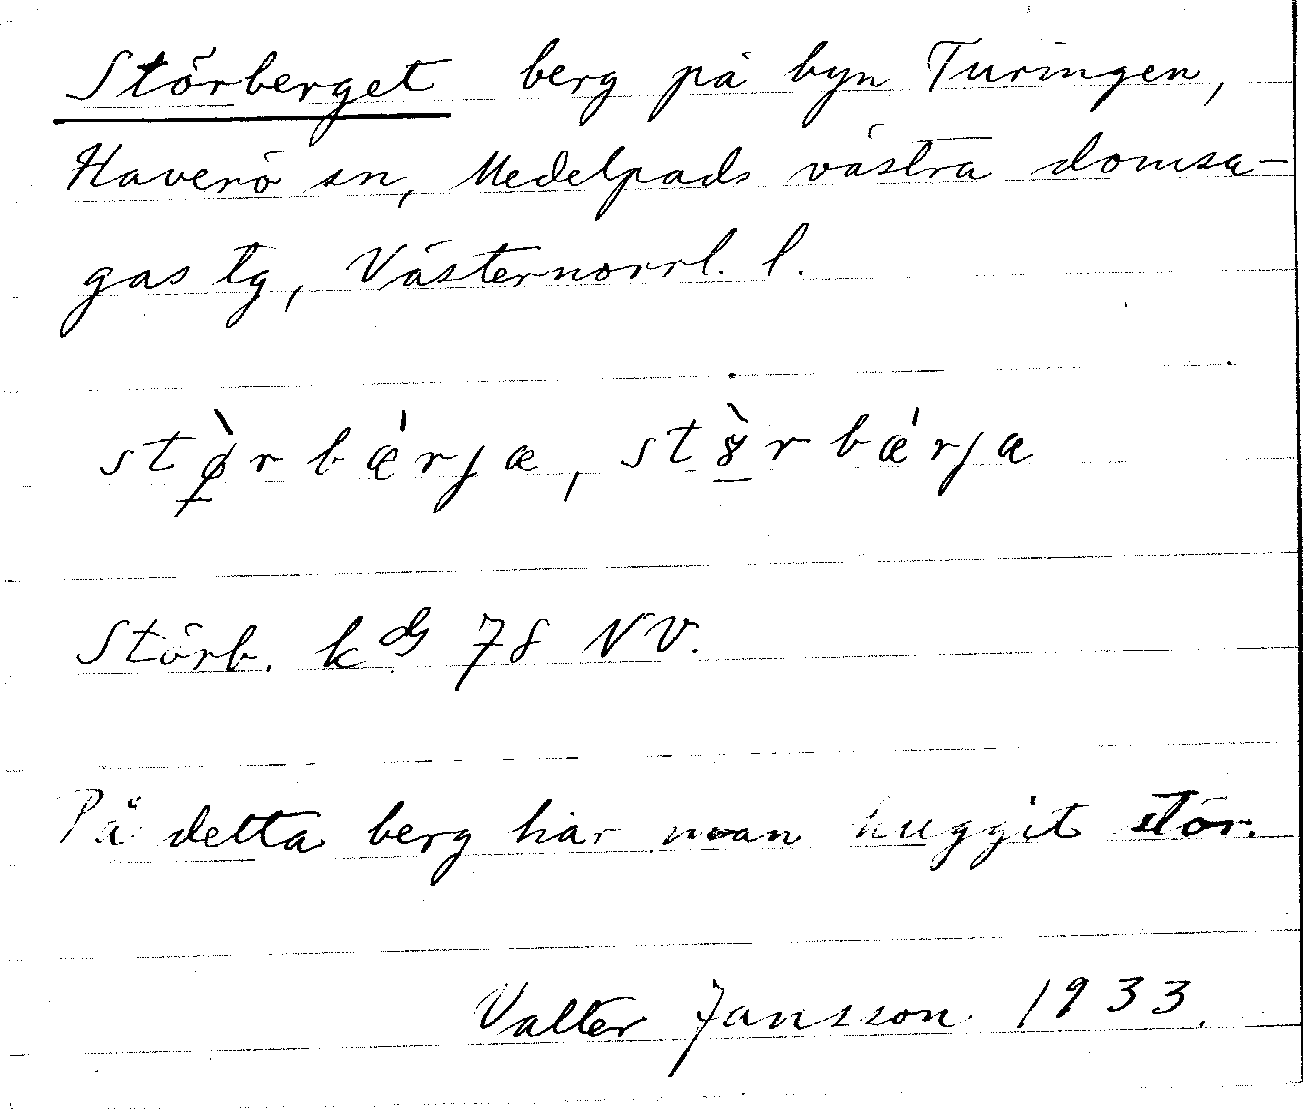 Störberget berg på byn Turingen,
Haverö sn, Medelpads västra domsa-
gas tg, Västernorrl. l.
stø̀rbǽrjæ, st8̀rbǽrjæ
Störb. kbl 78 NV.
På detta berg har man huggit stör.
Valter Jansson 1933.